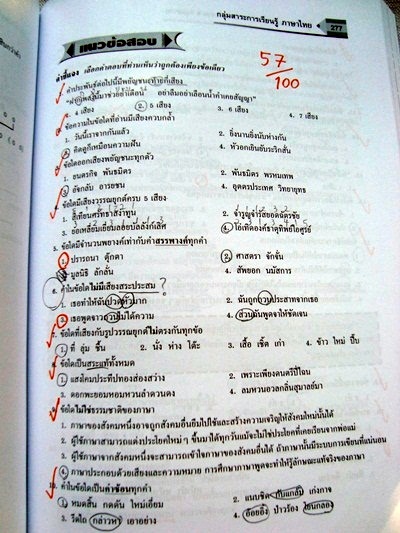 กลุ่มสาระการเรียนรู้ ภาษาไทย 277
แนวข้อสอบ
57
100
คำชี้แจง เลือกคำตอบที่ท่านเห็นว่าถูกต้องเพียงข้อเดียว
1. คำประพันธ์ต่อไปนี้มีพยัญชนะท้ายกี่เสียง
1. 4 เสียง 2. 5 เสียง 3. 6 เสียง 4. 7 เสียง
2. ข้อความในข้อใดที่อ่านมีเสียงควบกล้ำ
1. วันนี้เราจากกันแล้ว 2. ยิ่งนานยิ่งนับห่างกัน
3. คิดดูก็เหมือนความฝัน 4. หัวอกเอ๋ยยับระริกสั่น
3. ข้อใดออกเสียงพยัญชนะทุกตัว
1. ยนตรกิจ พันธมิตร 2. พันธมิตร พรหมเทพ
3. อัจกลับ อารยชน 4. อุตตรประเทศ วิทยายุทธ
4. ข้อใดมีเสียงวรรณยุกต์ครบ 5 เสียง
5. ข้อใดมีจำนวนพยางค์เท่ากับคำสรรพางค์ทุกคำ
1. ปรารถนา ตุ๊กตา 2. ศาสตรา จักจั่น
3. มูลนิธิ ลักลั่น 4. สัพยอก นมัสการ
6. คำในข้อใดไม่มีเสียงสระประสม ?
1. เธอทำให้ฉันปวดหัวมาก 2. ฉันถูกกวนประสาทจากเธอ
3. เธอพูดจาวกวนไม่ได้ความ 4. ส่วนฉันพูดจาให้ชัดเจน
7. ข้อใดที่เสียงกับรูปวรรณยุกต์ไม่ตรงกันทุกข้อ
1. ที่ ลุ่ม ชื้น 2. นั่ง ห่าง โต๊ะ 3. เสื้อ เชิ้ต เก่า 4. ข้าว ใหม่ ปึ้บ
8. ข้อใดเป็นสระแท้ทั้งหมด
1. แสงโคมประทีปทองส่องสว่าง 2. เพราะเพียงดนตรีปี่ไฉน
3. ดอกพะยอมหอมหวานลำดวนดง 4. ลมหวนอวลกลิ่นสุมาลย์มา
9. ข้อใดไม่ใช่ธรรมชาติของภาษา
1. ภาษาของสังคมหนึ่งอาจถูกสังคมอื่นยืมไปใช้และสร้างความเจริญให้สังคมใหม่นั้นได้
2. ผู้ใช้ภาษาสามารถแต่งประโยคใหม่ๆ ขึ้นมาได้ทุกวันแม้จะไม่ใช่ประโยคที่เคยเรียนจากพ่อแม่
3. ผู้ใช้ภาษาจากสังคมหนึ่งจะสามารถเข้าใจภาษาของสังคมอื่นได้ ถ้าภาษานั้นมีระบบการเขียนที่แน่นอน
4. ภาษาประกอบด้วยเสียงและความหมาย การศึกษาภาษาพูดจะทำให้รู้ลักษณะแท้จริงของภาษา
10. คำในข้อใดเป็นคำซ้อนทุกคำ
1. หมดสิ้น กดดัน ใหม่เอี่ยม 2. แนบชิด กับแกล้ม เก่งกาจ
3. รีดไถ กล่าวหา เอาอย่าง 4. อ้อยอิ่ง ป่าวร้อง โยนกลอง